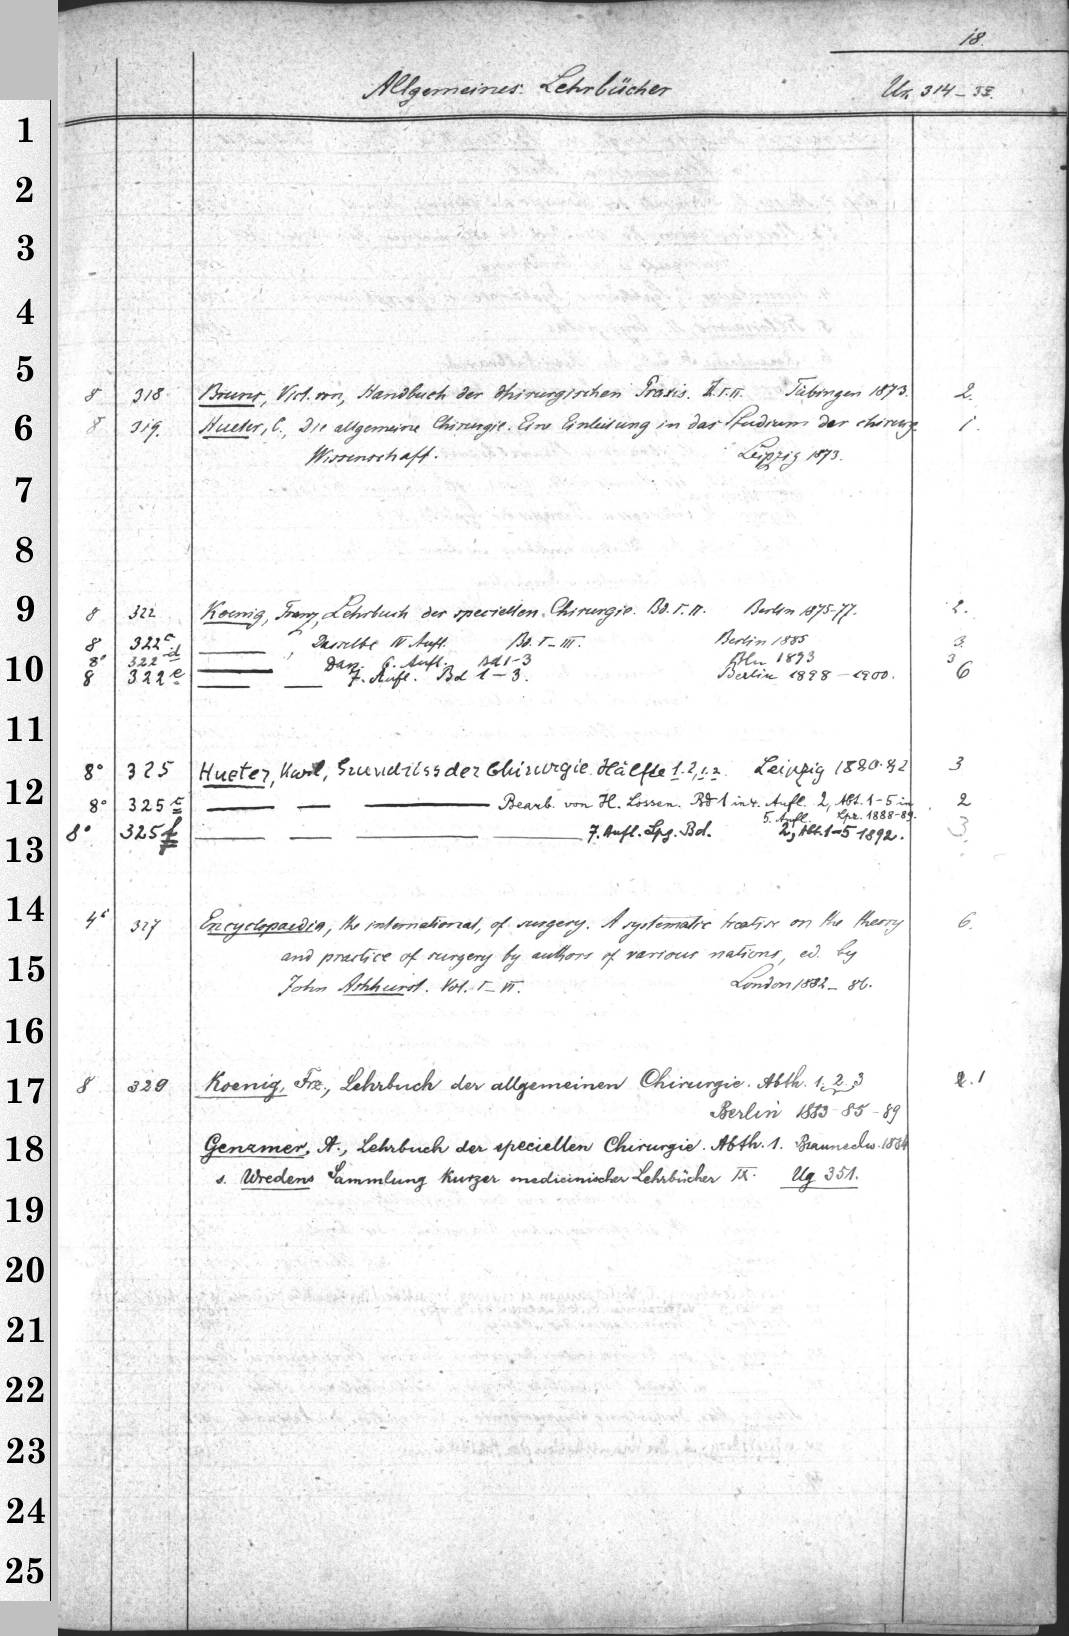 18.
Allgemeines. Lehrbücher
Ur. 314-33
1
2
3
4
5
8 318 Bruns, Vict. von, Handbuch der chirurgischen Praxis. I.II. Tübingen 1873. 2.
6
8 319. Hueter, C., Die allgemeine Chirurgie. Eine Einleitung in das Studium der chirurg. 1.
Wissenschaft. Leipzig 1873.
7
8
9
8 322 Koenig, Franz, Lehrbuch der speciellen Chirurgie. Bd. I.II. Berlin 1875-77. 2.
8 322c Dasselbe IV Aufl. Bd. I-III. Berlin 1885 3.
8° 322d Dass. 6. Aufl. Bd 1-3 Bln 1893 3
10
8 322e 7. Aufl. Bd 1-3. Berlin 1898-1900. 6
11
8° 325 Hueter, Karl, Grundriss der Chirurgie. Hälfte 1.2,1.2. Leipzig 1880-82 3
12
8° 325c Bearb. von H. Lossen. Bd 1 in 4. Aufl. 2, Abt. 1-5 in 2
5. Aufl. Lpz. 1888-89.
8° 325f 7. Aufl. Lpg. Bd. 2, Abt. 1-5 1892. 3
13
14
4° 327 Encyclopaedia, the international, of surgery. A systematic treatise on the theory 6.
and practice of surgery by authors of various nations, ed. by
15
John Ashhurst. Vol. I-VI. London 1882-86.
16
8 329 Koenig, Frz., Lehrbuch der allgemeinen Chirurgie. Abth. 1. 2 3 2. 1
17
Berlin 1883-85-89
18
Genzmer, A., Lehrbuch der speciellen Chirurgie. Abth. 1. Braunschw. 1884
s. Wredens Sammlung kurzer medicinischer Lehrbücher IX. Ug 351.
19
20
21
22
23
24
25